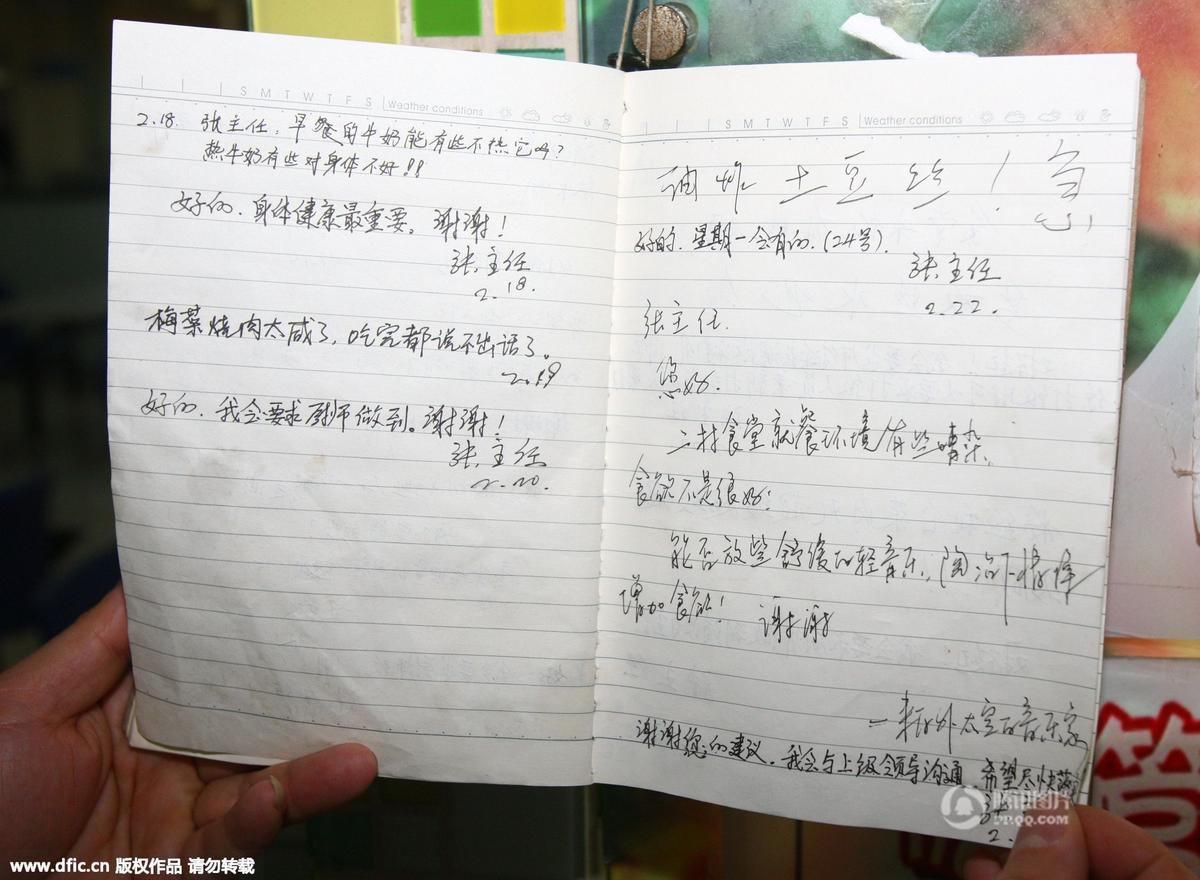 S M T W T F S Weather conditions
2.18. 张主任，早餐的牛奶能有些不热它吗？
热牛奶有些对身体不好！！
好的．身体健康最重要。谢谢！
张主任
2.18.
梅菜烧肉太咸了，吃完都说不出话了。
2.19
好的．我会要求厨师做到。谢谢！
张主任
2.20.
S M T W T F S Weather conditions
油炸土豆丝！急
好的．星期一会有的．(24号)．
张主任
2.22.
张主任．
您好．
二村食堂就餐环境有些嘈杂，
食欲不是很好．
能否放些舒缓的轻音乐，陶冶下情操
增加食欲！ 谢谢
一来自外太空的音乐家
谢谢您的建议。我会与上级领导沟通 希望尽快落
张
2.
腾讯图片
PP.QQ.COM
www.dfic.cn 版权作品 请勿转载